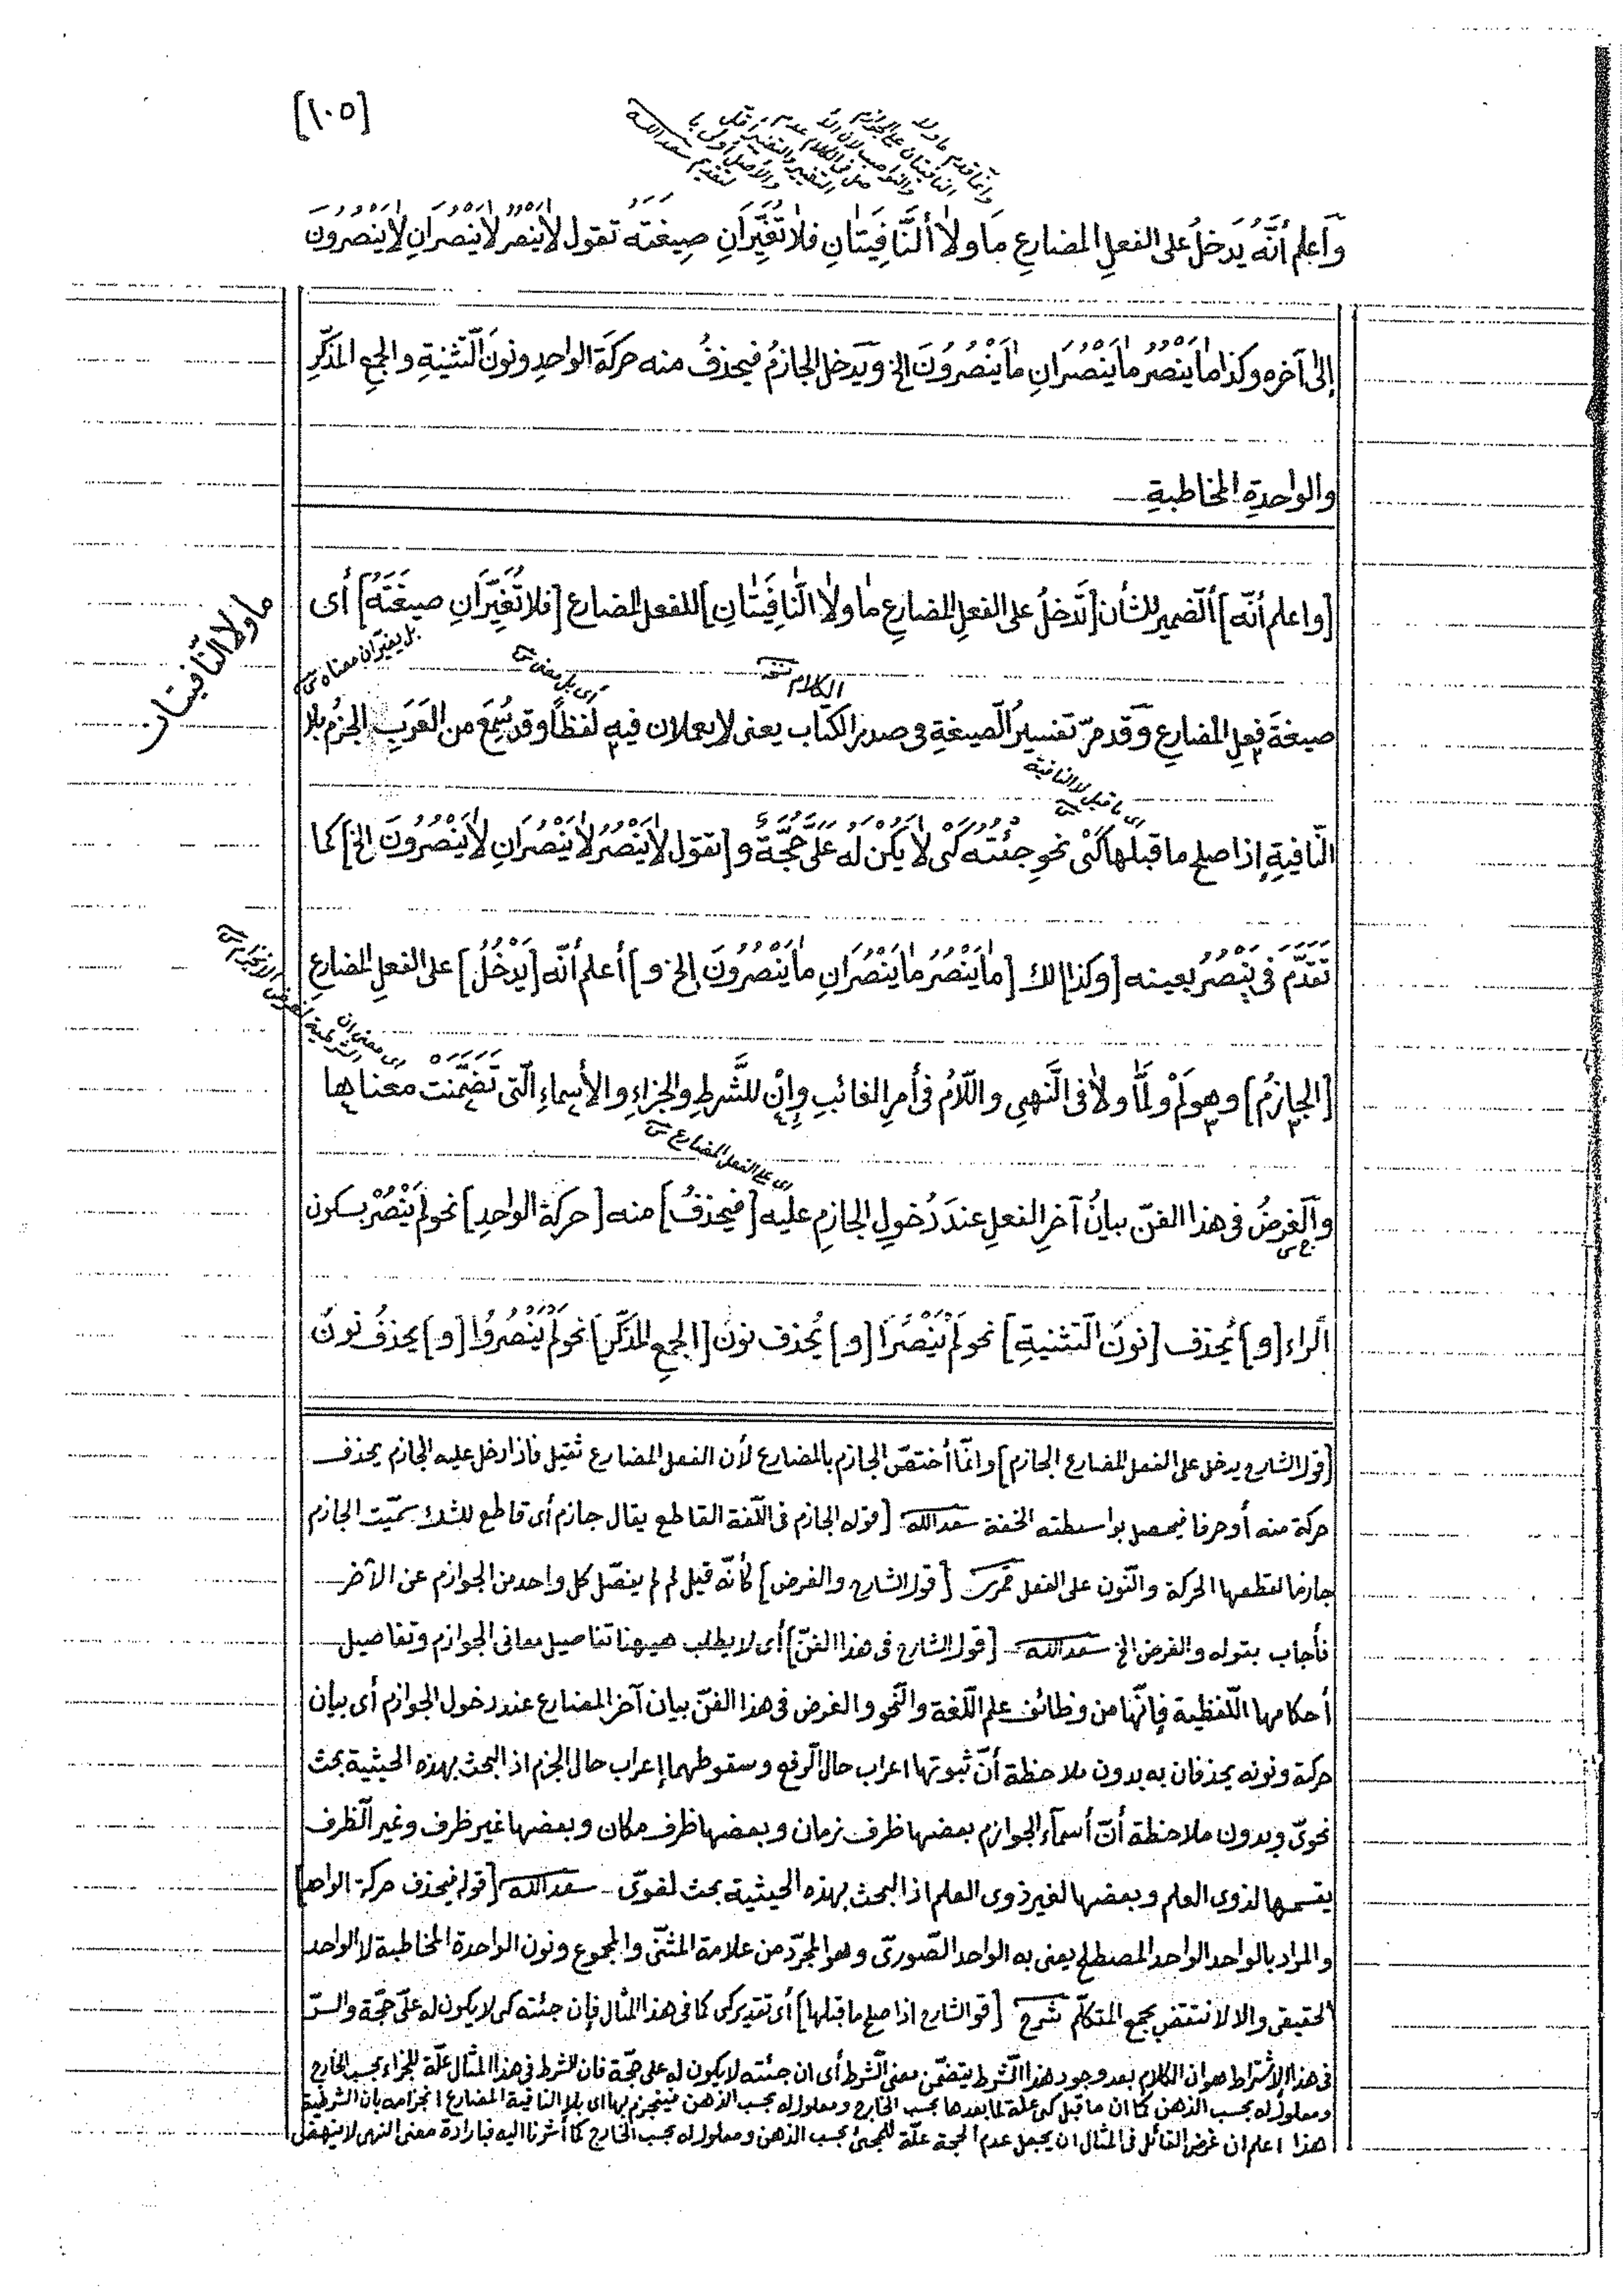 [١٠٥]
وإنّما قدم ما ولا
النافيتان على الجوازم
والنواصب لأن الأ
صل فى الكلام عدم
التغيير والتغيير أقل
والأصل أولى با
لتقديم سعد الله
وَاَعلم أَنَّهُ يَدخلُ على الفعلِ المضارعِ مَا ولاٰ ألنَّافِيَتٰانِ فلاٰ تُغَيِّرَانِ صِيغَتَهُ تقول لاٰيَنْصُرُ لاٰيَنْصُرَانِ لاٰيَنْصُرُونَ
إلىٰ آخره وكذا مٰا يَنْصُرُ مٰا يَنْصُرَانِ مٰا يَنْصُرُونَ الخ ويَدخل الجازمُ فيحذفُ منه حركَة الواحدِ ونونَ التّثنيةِ والجمع المذكّرِ
والواحدةِ المخاطبةِ
ما ولا النّافيتان
[واعلم أنّه] ألضّمير للشأن [تَدخلُ على الفعلِ المضارعِ مٰا ولاٰ النّافِيَتٰانِ] للفعل المضارع [فلا تُغَيِّرَانِ صيغَتَهُ] أى
بل يغيّران معناه
أى بل معنى
الكلام نسخه
صيغةَ فِعلِ المضارع وَقد مرّ تفسيرُ الصّيغةِ فى صدر الكتاب يعنى لا يعملان فيهِ لَفظاً وقد سُمِعَ من العَرَبِ الجزمُ بلا
أى ما قبل لا النافية
النّافيةِ إذا صلح ما قبلها كَىْ نحوِ جِئتُه كَىْ لاٰ يَكُنْ لَهُ عَلَىَّ حُجَّةٌ و [تقول لاٰيَنْصُرُ لاٰيَنْصُرَانِ لاٰيَنْصُرُونَ الخ] كما
تَقَدَّمَ فى يَنْصُرُ بعينه [وكذا] لك [مٰا يَنْصُرُ مٰا يَنْصُرَانِ مٰا يَنْصُرُونَ الخ و] أعلم أنّه [يَدْخُلُ] على الفعلِ المضارعِ
أى معنى ان
الشرطية
[الجازمُ] وهو لَمْ ولَمَّا ولاٰ فى النَّهىِ واللّامُ فى أمرِ الغائبِ وإنْ للشَّرطِ والجزاءِ والأسماءِ الّتى تَضَمَّنَتْ معناها
أى على الفعل المضارع
وألغرضُ فى هذا الفنّ بيانُ آخرِ الفعلِ عندَ دُخولِ الجازمِ عليه [فيحذفُ] منه [حركة الواحدِ] نحو لَمْ يَنْصُرْ بسكون
الرّاء [و] يُحذف [نونَ التّثنيةِ] نحو لَمْ يَنْصُرَا [و] يُحذف نون [الجمعِ المذكّر] نحو لَمْ يَنْصُرُوا [و] يحذفُ نونَ
[قول الشارح يدخل على الفعل المضارع الجازم] وانّما أختصّ الجازم بالمضارع لأن الفعل المضارع ثقيل فاذا دخل عليه الجازم يحذف
حركة منه أو حرفا فيحصل بواسطته الخفة سعد الله [قوله الجازم فى اللّغة القاطع يقال جازم أى قاطع للشك سمّيت الجازم
جازما لقطعها الحركة والنّون على الفعل [قول الشارح والغرض] كأنّه قيل لم لم يفصّل كل واحد من الجوازم عن الآخر
فأجاب بقوله والغرض الخ سعد الله [قول الشارح فى هذا الفنّ] أى لا يطلب هيهنا تفاصيل معانى الجوازم وتفاصيل
أحكامها اللّفظية فإنّها من وظائف علم اللّغة والنّحو والغرض فى هذا الفنّ بيان آخر المضارع عند دخول الجوازم أى بيان
حركة ونونه يحذفان به بدون ملاحظة أنّ ثبوتها اعراب حال الرّفع وسقوطهما إعراب حال الجزم اذ البحث بهذه الحيثية بحث
نحوىّ وبدون ملاحظة أنّ أسمآء الجوازم بعضها ظرف زمان وبعضها ظرف مكان وبعضها غير ظرف وغير الظّرف
يقسمها لذوى العلم وبعضها لغير ذوى العلم اذ البحث بهذه الحيثية بحث لغوىّ سعد الله [قوله فيحذف حركة الواحد]
والمراد بالواحد الواحد المصطلح يعنى به الواحد الصّورىّ وهو المجرّد من علامة المثنّى والمجموع ونون الواحدة المخاطبة لا الواحد
الحقيقى والا لانتقض بجمع المتكلّم شرح [قو الشارح اذا صلح ما قبلها] أى تقدير كى كما فى هذا المثال فإن جئته كى لا يكون له علىّ حجّة والسرّ
فى هذا الإشتراط هو ان الكلام بعد وجود هذا الشّرط يتضمّن معنى الشّرط أى ان جئته لا يكون له على حجّة فان للشرط فى هذا المثال علّة للجزاء بحسب الخارج
ومعلول له بحسب الذهن كما ان ما قبل كى علة لما بعدها بحسب الخارج ومعلول له بحسب الذهن فينجزم بها اى بلا النافية المضارع انجزامه بان الشرطية
هذا اعلم ان غرض القائل فى المثال ان يجعل عدم الحجة علّة للمجئ بحسب الذهن ومعلول له بحسب الخارج كما أشرنا اليه فبارادة معنى النهى لا